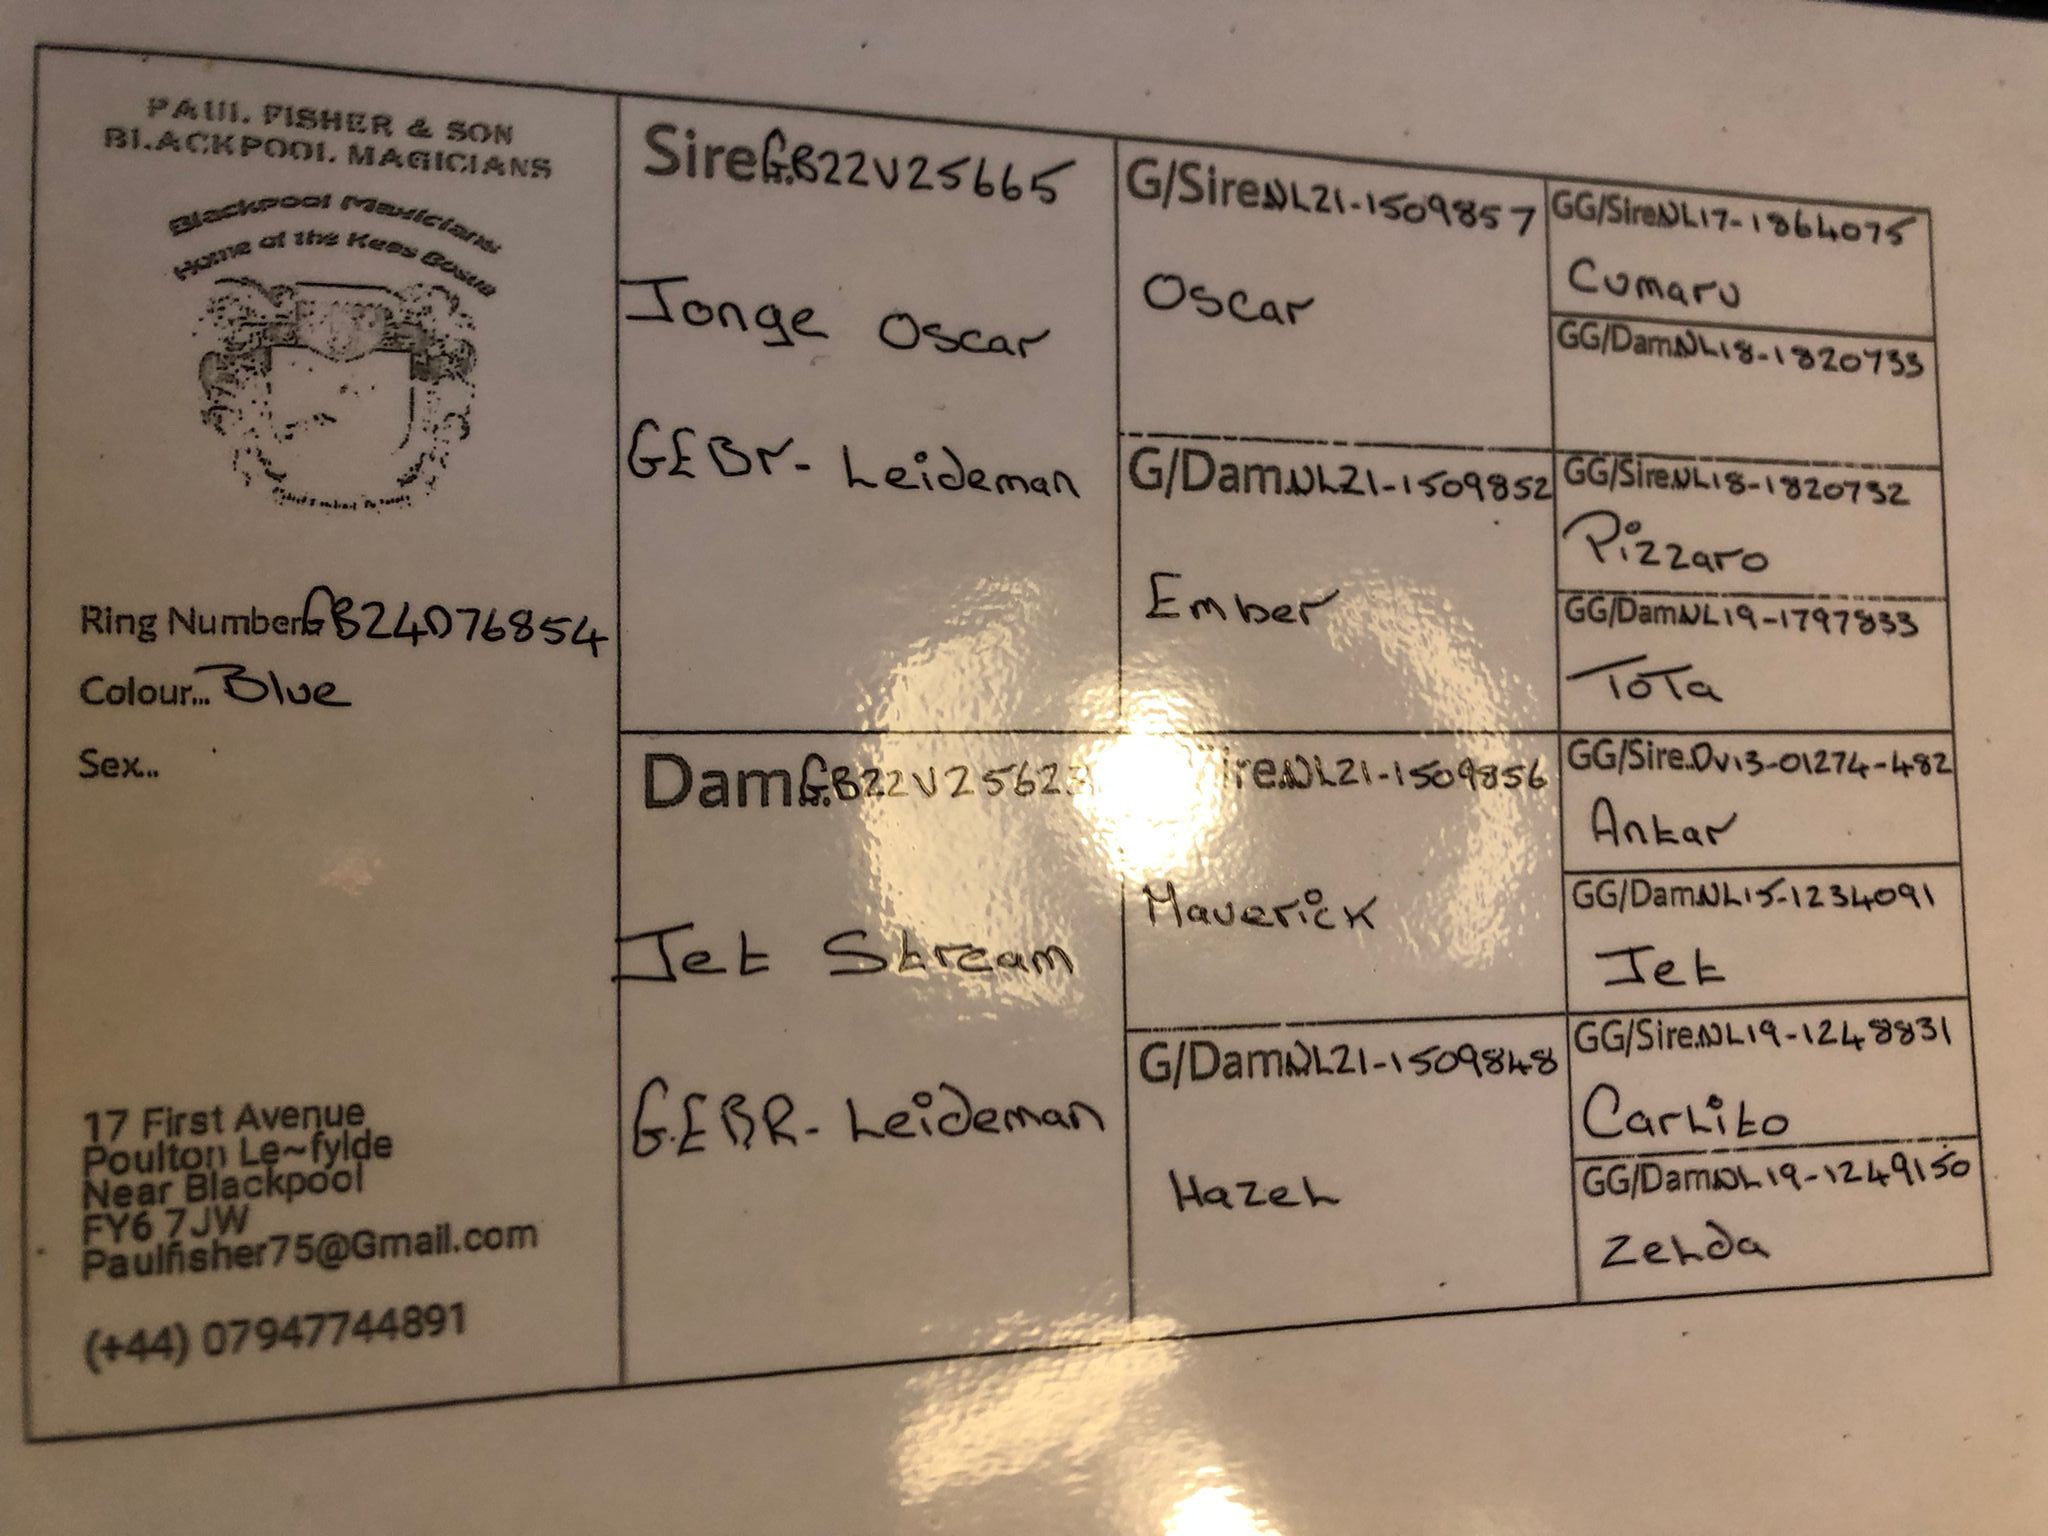 PAUL FISHER & SON
BLACKPOOL MAGICIANS
Blackpool Maxicians
Home of the Kees Bosua
Ring Number GB24D76854
Colour... Blue
Sex...
17 First Avenue
Poulton Le~fylde
Near Blackpool
FY6 7JW
Paulfisher75@Gmail.com
(+44) 07947744891
Sire GB22V25665
Jonge Oscar
GEBr- Leideman
Dam GB22V25623
Jet Stream
G.EBR- Leideman
G/Sire NL21-1509857
Oscar
G/Dam NL21-1509852
Ember
ire NL21-1509856
Maverick
G/Dam NL21-1509848
Hazel
GG/Sire NL17-1864075
Cumaru
GG/Dam NL18-1820733
GG/Sire NL18-1820732
Pizzaro
GG/Dam NL19-1797833
ToTa
GG/Sire..DV13-01274-482
Ankar
GG/Dam NL15-1234091
Jet
GG/Sire NL19-1248831
Carlito
GG/Dam NL19-1249150
Zelda